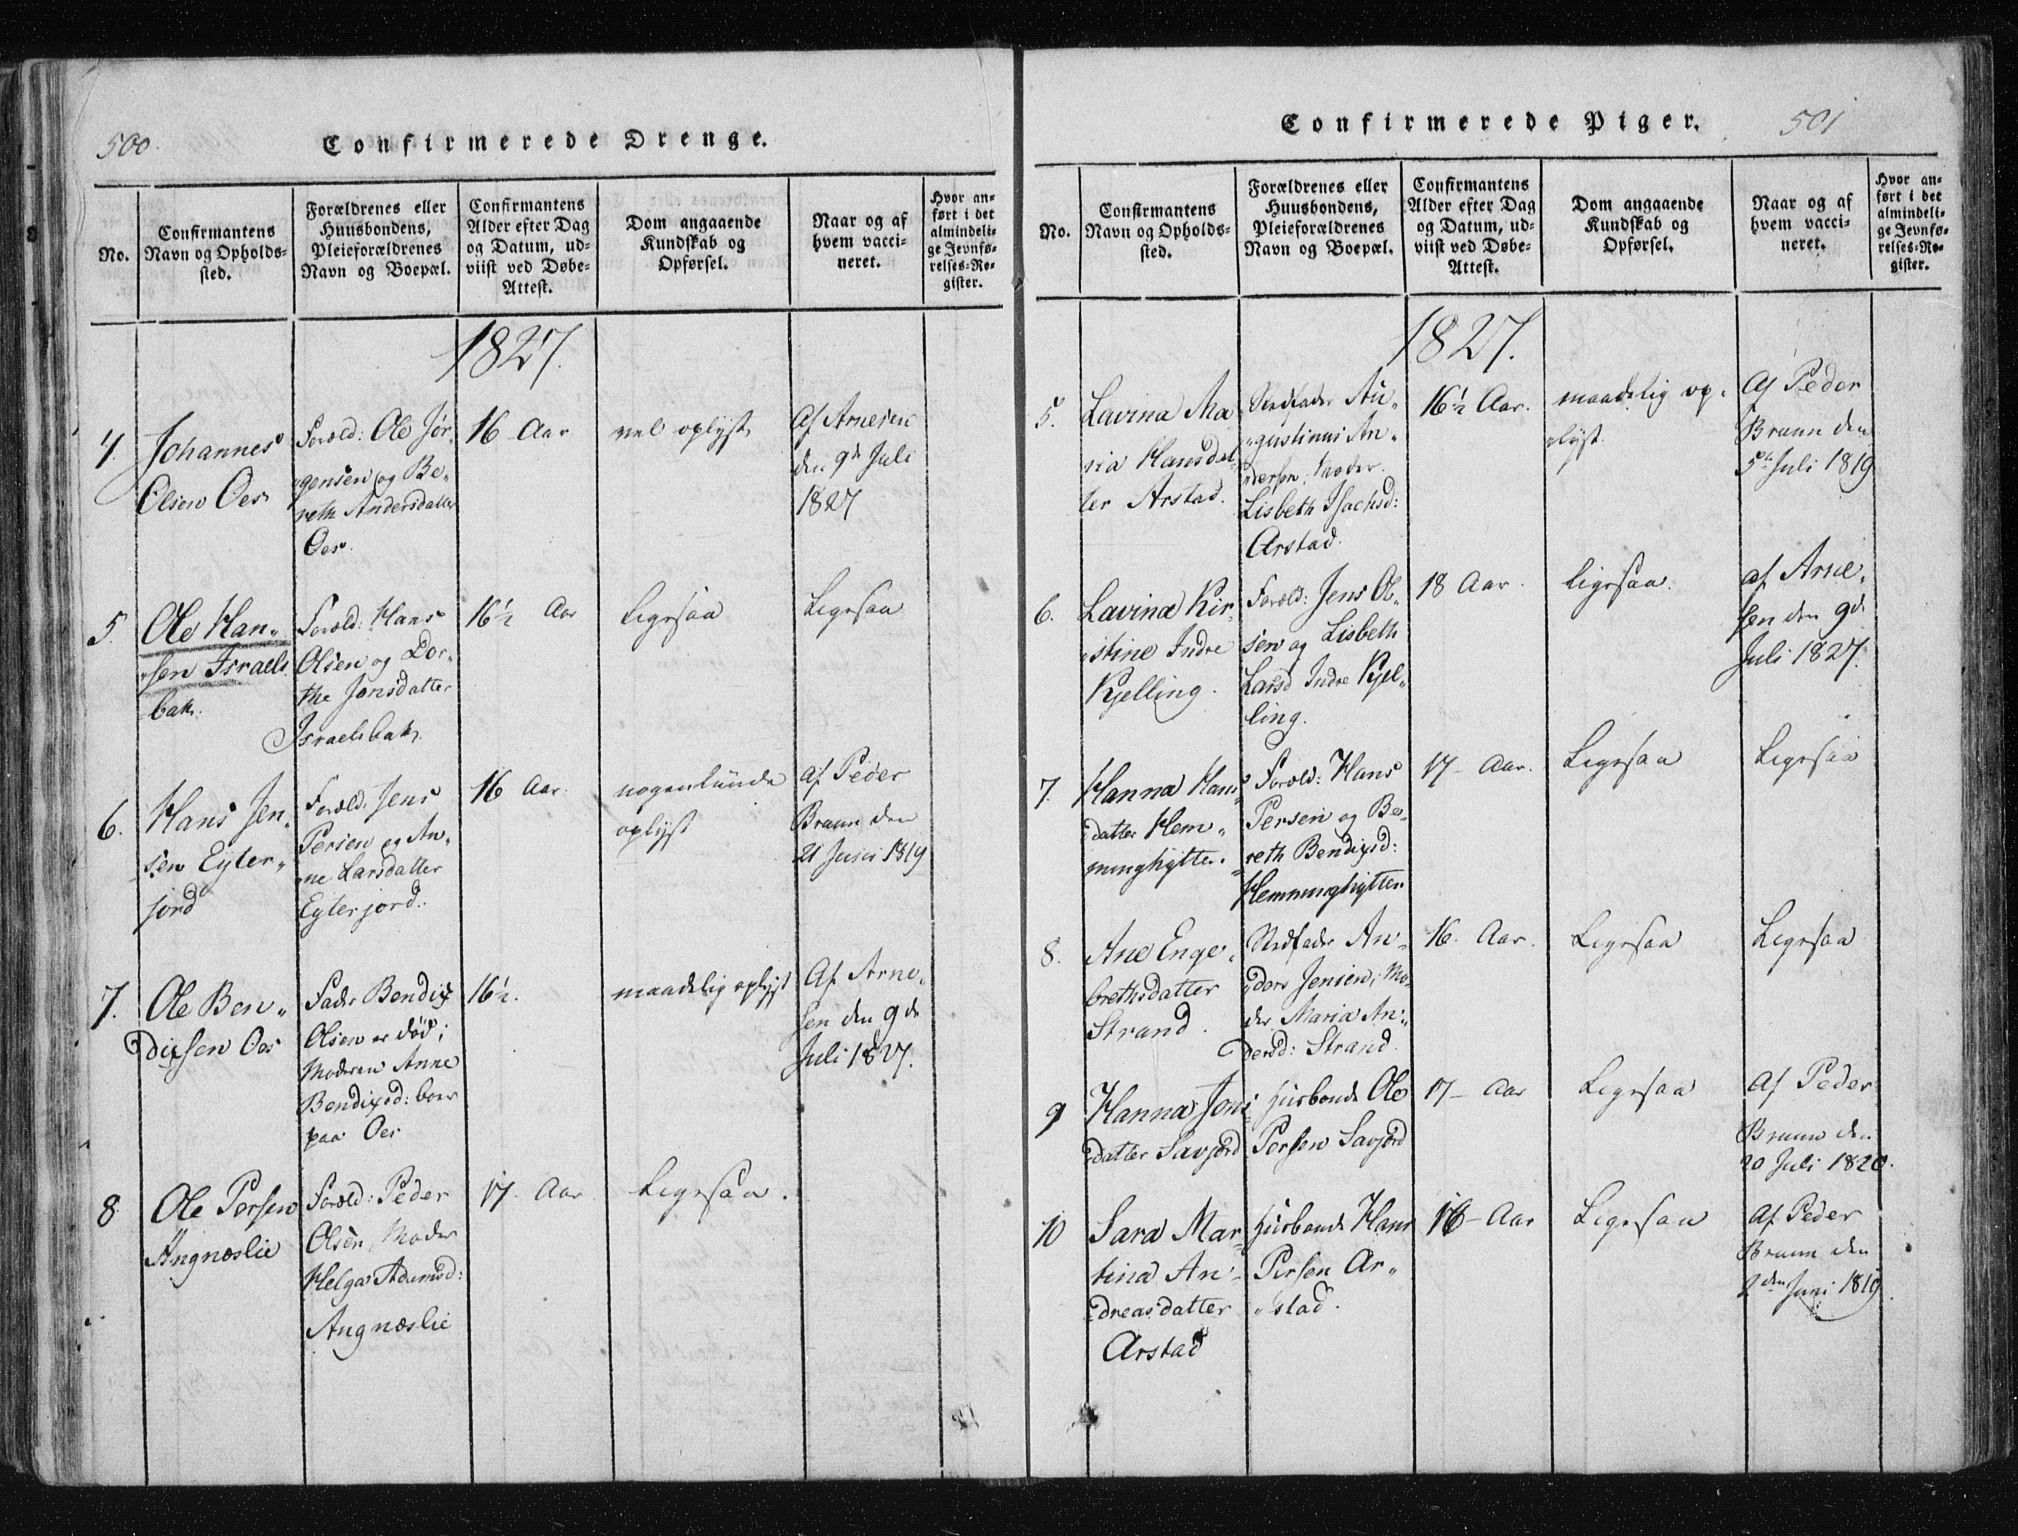 500.
Confirmerede Drenge.
No.
Confirmantens
Navn og Opholds-
sted.
Forældrenes eller
Huusbondens,
Pleieforældrenes
Navn og Boepæl.
Confirmantens
Alder efter Dag
og Datum, ud-
viist ved Døbe-
Attest.
Dom angaaende
Kundskab og
Opførsel.
Naar og af
hvem vacci-
neret.
Hvor an-
ført i det
almindeli-
ge Jevnfø-
relses-Re-
gister.
1827.
4.
Johannes
Olsen Oes
Foræld: Ole Jør-
gensen og Be-
reth Andersdatter
Oes.
16 Aar
vel oplyst
Af Arnesen
den 9de Juli
1827
5.
Ole Han-
sen Israels
bak.
Foræld: Hans
Olsen og Dor-
the Jonsdatter
Israelsbak
16½ Aar
Ligesaa
Ligesaa
6.
Hans Jen-
sen Eyter-
jord
Foræld: Jens
Persen og An-
ne Larsdatter
Eyterjord.
16 Aar.
nogenlunde
oplyst
af Peder
Bruun den
21 Juni 1819
7.
Ole Ben-
dixsen Oes
Fader Bendix
Olsen er død;
Moderen Anne
Bendixsd: boer
paa Oes
16½.
maadelig oplyst
Af Arne-
sen den 9de
Juli 1827.
8
Ole Persen
Angnæslie
Foræld: Peder
Olsen, Moder
Helga Adamsd:
Angnæslie
17. Aar
Ligesaa.
Confirmerede Piger.
501
No.
Confirmantens
Navn og Opholds-
sted.
Forældrenes eller
Huusbondens,
Pleieforældrenes
Navn og Boepæl.
Confirmantens
Alder efter Dag
og Datum, ud-
viist ved Døbe-
Attest.
Dom angaaende
Kundskab og
Opførsel.
Naar og af
hvem vacci-
neret.
Hvor an-
ført i det
almindeli-
ge Jevnfø-
relses-Re-
gister.
1827.
5.
Lavina Ma
ria Hansdat-
ter Arstad.
Stedfader Au-
gustinus An-
dersen, Moder
Lisbeth Isachsd:
Arstad.
16½ Aar.
maadelig op-
lyst.
Af Peder
Bruun den
5te Juli 1819
6.
Lavina Kir
stine Indre
Kjelling.
Foræld: Jens Ol-
sen og Lisbeth
Larsd Indre Kjel-
ling.
18 Aar.
ligesaa.
af Arne-
sen den 9de
Juli 1827.
7.
Hanna Hans
datter Hem-
minghytten.
Foræld: Hans
Persen og Be-
reth Bendixsd:
Hemminghytten
17 Aar.
Ligesaa
Ligesaa
8.
Ane Enge-
brethsdatter
Strand.
Stedfader An-
ders Jensen, Mo-
der Maria An-
dersd: Strand.
16. Aar.
Ligesaa
Ligesaa
9
Hanna Jons
datter Savjord
Husbonde Ole
Persen Savjord
17 Aar
Ligesaa
Af Peder
Bruun den
20 Juli 1820.
10
Sara Mar-
tina An-
dreasdatter
Arstad
Husbonde Hans
Persen Ar-
stad.
18 Aar
Ligesaa
Af Peder
Bruun den
2den Juni 1819.